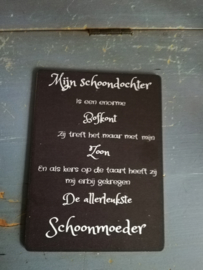 Mijn schoondochter
is een enorme
Bofkont
Zij treft het maar met mijn
Zoon
En als kers op de taart heeft zij
mij erbij gekregen
De allerleukste
Schoonmoeder